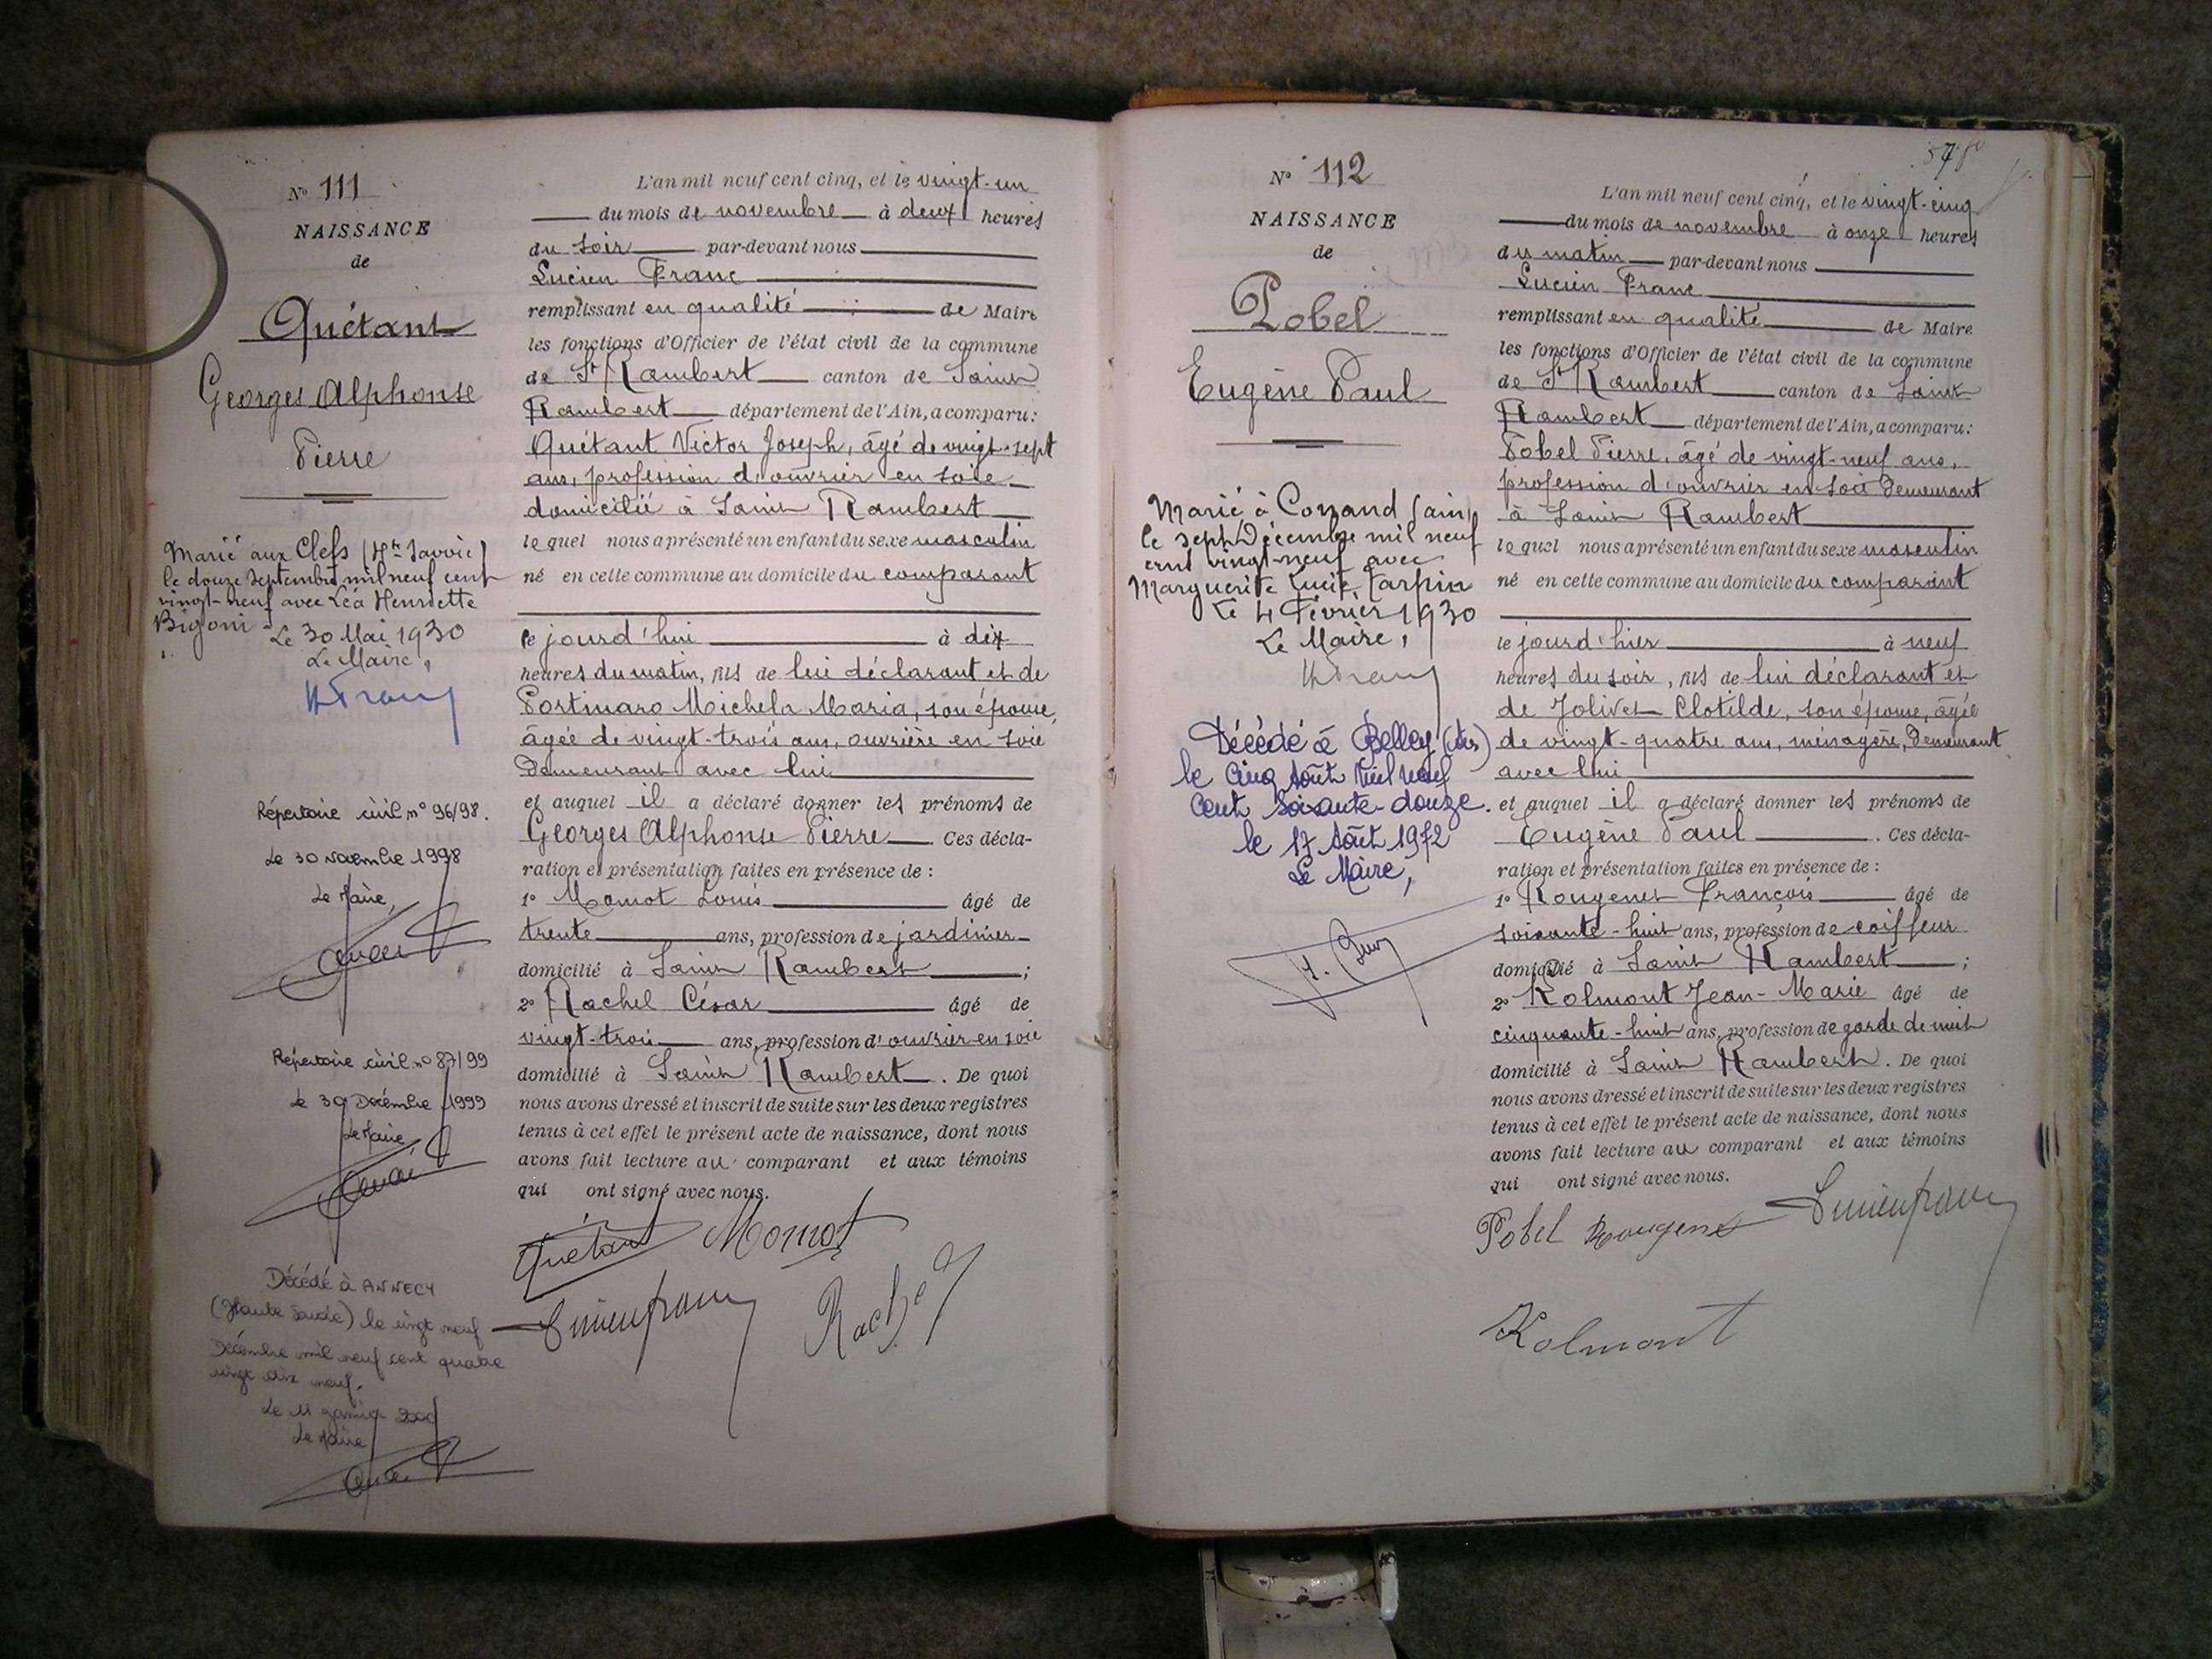 N° 111
NAISSANCE
de
Quétant
Georges Alphonse
Pierre
Marié aux Clefs (Hte Savoie)
le douze Septembre mil neuf cent
vingt-neuf avec Léa Henriette
Bigoni
Le 30 Mai 1930
Le Maire,
Répertoire civil n° 96/98.
Le 30 Novembre 1998
Le Maire,
Répertoire civil n° 87/99
Le 30 Décembre 1999
Le Maire
Décédé à ANNECY
(Haute Savoie) le vingt neuf
Décembre mil neuf cent quatre
vingt dix neuf.
Le 11 janvier 2000
Le Maire
L'an mil neuf cent cinq, et le vingt-un
du mois de novembre à deux heures
du soir par-devant nous
Lucien Franc
remplissant en qualité de Maire
les fonctions d'Officier de l'état civil de la commune
de St Rambert canton de Saint
Rambert département de l'Ain, a comparu:
Quétant Victor Joseph, âgé de vingt-sept
ans, profession d'ouvrier en soie
domicilié à Saint Rambert
lequel nous a présenté un enfant du sexe masculin
né en cette commune au domicile du comparant
le jourd'hui à dix
heures du matin, fils de lui déclarant et de
Portinaro Michela Maria, son épouse,
âgée de vingt-trois ans, ouvrière en soie
demeurant avec lui
et auquel il a déclaré donner les prénoms de
Georges Alphonse Pierre. Ces décla-
ration et présentation faites en présence de :
1° Mornot Louis âgé de
trente ans, profession de jardinier
domicilié à Saint Rambert ;
2° Rachel César âgé de
vingt-trois ans, profession d'ouvrier en soie
domicilié à Saint Rambert. De quoi
nous avons dressé et inscrit de suite sur les deux registres
tenus à cet effet le présent acte de naissance, dont nous
avons fait lecture au comparant et aux témoins
qui ont signé avec nous.
Quétant Mornot
Lucien franc Rachel
N° 112
NAISSANCE
de
Pobel
Eugène Paul
Marié à Conand (Ain)
le sept Décembre mil neuf
cent vingt-neuf avec
Marguerite Lucie Tarpin
Le 4 Février 1930
Le Maire,
Décédé à Belley (Ain)
le cinq Août mil neuf
cent soixante-douze.
le 17 Août 1972
Le Maire,
L'an mil neuf cent cinq, et le vingt-cinq
du mois de novembre à onze heures
du matin par-devant nous
Lucien Franc
remplissant en qualité de Maire
les fonctions d'Officier de l'état civil de la commune
de St Rambert canton de Saint
Rambert département de l'Ain, a comparu:
Pobel Pierre, âgé de vingt-neuf ans,
profession d'ouvrier en soie demeurant
à Saint Rambert
lequel nous a présenté un enfant du sexe masculin
né en cette commune au domicile du comparant
le jourd'hier à neuf
heures du soir, fils de lui déclarant et
de Jolivet Clotilde, son épouse, âgée
de vingt-quatre ans, ménagère, demeurant
avec lui
et auquel il a déclaré donner les prénoms de
Eugène Paul. Ces décla-
ration et présentation faites en présence de :
1° Rougenet François âgé de
soixante-huit ans, profession de coiffeur
domicilié à Saint Rambert ;
2° Kolmont Jean-Marie âgé de
cinquante-huit ans, profession de garde de nuit
domicilié à Saint Rambert. De quoi
nous avons dressé et inscrit de suite sur les deux registres
tenus à cet effet le présent acte de naissance, dont nous
avons fait lecture au comparant et aux témoins
qui ont signé avec nous.
Pobel Rougenet Lucien franc
Kolmont